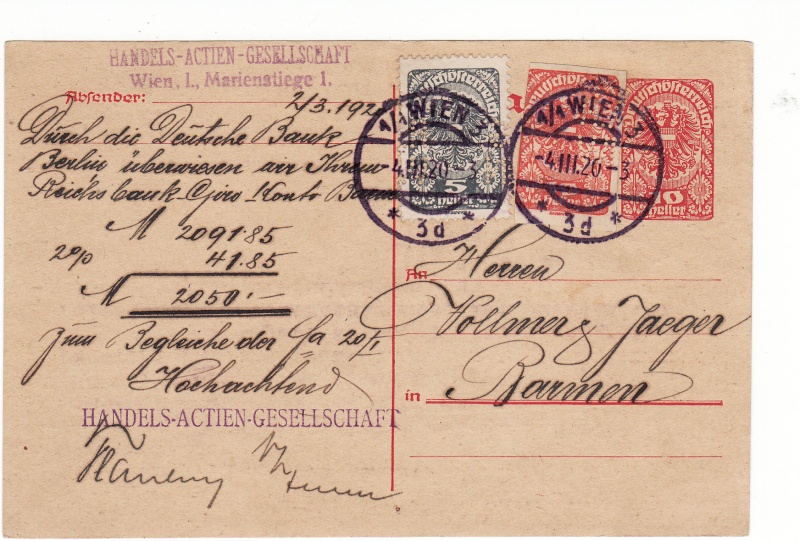 HANDELS-ACTIEN-GESELLSCHAFT
Wien, I., Marienstiege 1.
Absender:
2/3. 192
Durch die Deutsche Bank
Berlin überwiesen wir Ihrem
Reichsbank-Giro Konto Barmen
M 2091.85
2% 41.85
M 2050.-
zum Begleiche der fa 20/I
Hochachtend
HANDELS-ACTIEN-GESELLSCHAFT
5
Heller
1/1 WIEN 3
-4.III.20
* 3d *
Deutschösterreich
1/1 WIEN 3
-4.III.20-3
* 3d *
Deutschösterreich
10
Heller
An
Herren
Vollmer & Jaeger
in Barmen